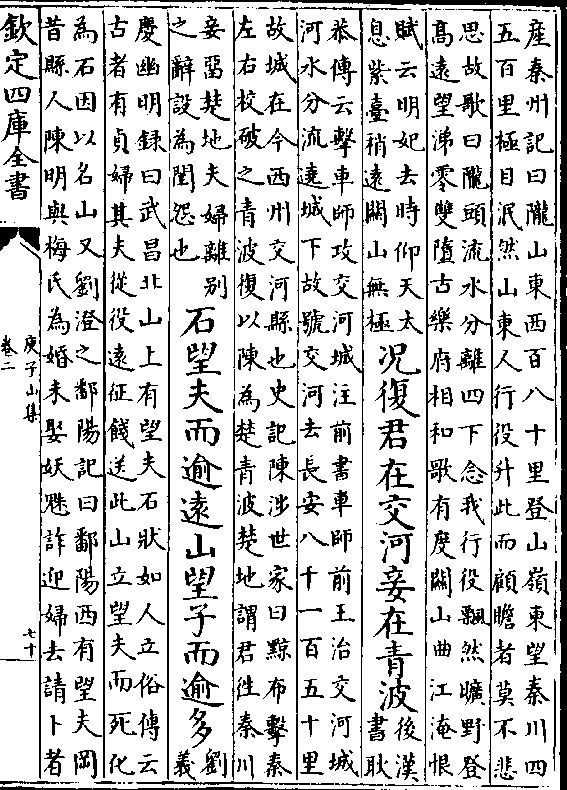 産秦州記曰隴山東西百八十里登山嶺東望秦川四
五百里極目泯然山東人行役升此而顧瞻者莫不悲
思故歌曰隴頭流水分離四下念我行役飄然曠野登
髙逺望涕零雙墮古樂府相和歌有度闗山曲江淹恨
賦云明妃去時仰天太
息紫臺稍逺闗山無極
况復君在交河妾在青波
後漢
書耿
恭傳云擊車師攻交河城注前書車師前王治交河城
河水分流遶城下故號交河去長安八千一百五十里
故城在今西州交河縣也史記陳渉世家曰黥布擊秦
左右校破之青波復以陳為楚青波楚地謂君徃秦川
妾留楚地夫婦離别
之辭設為閨怨也
石望夫而逾逺山望子而逾多
劉
義
慶幽明録曰武昌北山上有望夫石狀如人立俗傳云
古者有貞婦其夫從役逺征餞送此山立望夫而死化
為石因以名山又劉澄之鄱陽記曰鄱陽西有望夫岡
昔縣人陳明與梅氏為婚未娶妖魅詐迎婦去請卜者
欽定四庫全書
庾子山集
卷二
七十